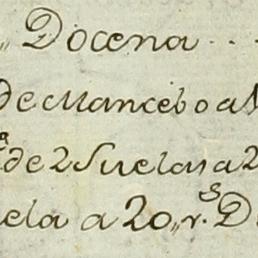 „ Docena . . .
de Mancebo a
de 2 Suelas a 2
ela a 20„ r.s D